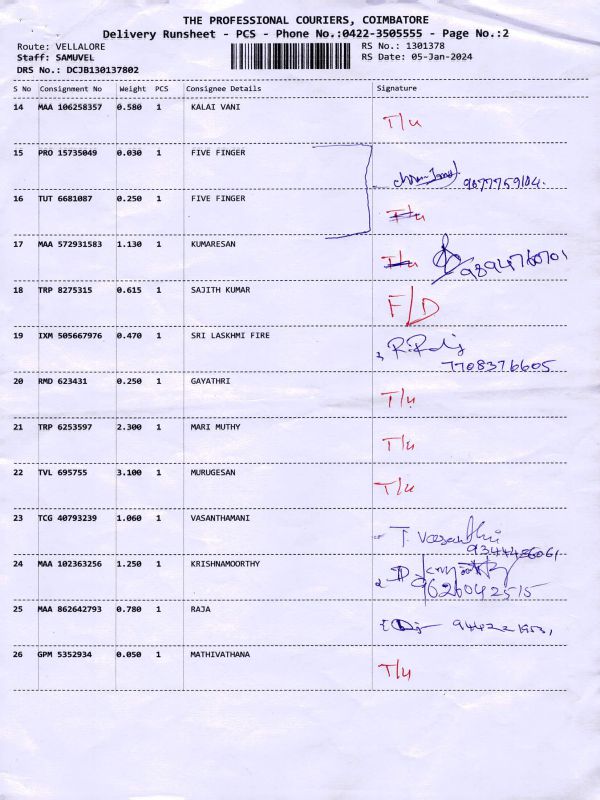 THE PROFESSIONAL COURIERS, COIMBATORE
Delivery Runsheet - PCS - Phone No.:0422-3505555 - Page No.:2
Route: VELLALORE RS No.: 1301378
Staff: SAMUVEL RS Date: 05-Jan-2024
DRS No.: DCJB130137802
S No Consignment No Weight PCS Consignee Details Signature
14 MAA 106258357 0.580 1 KALAI VANI T/u
15 PRO 15735049 0.030 1 FIVE FINGER 9077759104.
16 TUT 6681087 0.250 1 FIVE FINGER T/u
17 MAA 572931583 1.130 1 KUMARESAN T/u
18 TRP 8275315 0.615 1 SAJITH KUMAR F/D
19 IXM 505667976 0.470 1 SRI LASKHMI FIRE
7708376605
20 RMD 623431 0.250 1 GAYATHRI T/u
21 TRP 6253597 2.300 1 MARI MUTHY T/u
22 TVL 695755 3.100 1 MURUGESAN T/u
23 TCG 40793239 1.060 1 VASANTHAMANI T. Vasanthi
9344486061
24 MAA 102363256 1.250 1 KRISHNAMOORTHY
2626042515
25 MAA 862642793 0.780 1 RAJA
26 GPM 5352934 0.050 1 MATHIVATHANA T/u